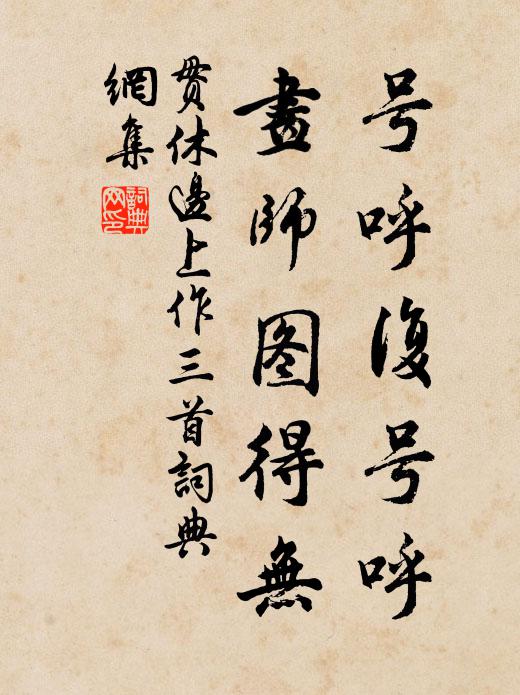 号呼復号呼
畫師图得無
貫休邊上作三首詞典
網集
詞典
网印